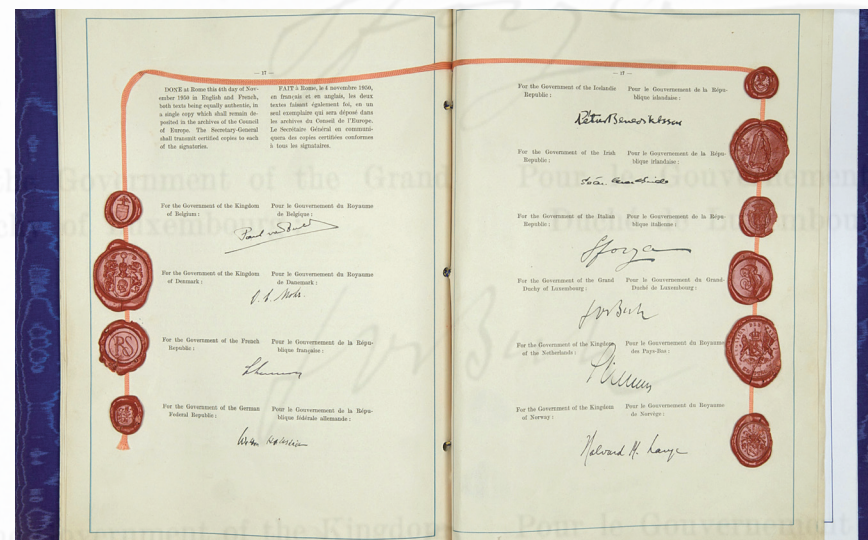 — 17 —
DONE at Rome this 4th day of Nov-
ember 1950 in English and French,
both texts being equally authentic, in
a single copy which shall remain de-
posited in the archives of the Council
of Europe. The Secretary-General
shall transmit certified copies to each
of the signatories.
FAIT à Rome, le 4 novembre 1950,
en français et en anglais, les deux
textes faisant également foi, en un
seul exemplaire qui sera déposé dans
les archives du Conseil de l'Europe.
Le Secrétaire Général en communi-
quera des copies certifiées conformes
à tous les signataires.
For the Government of the Kingdom
of Belgium :
Pour le Gouvernement du Royaume
de Belgique :
For the Government of the Kingdom
of Denmark :
Pour le Gouvernement du Royaume
de Danemark :
For the Government of the French
Republic :
Pour le Gouvernement de la Répu-
blique française :
For the Government of the German
Federal Republic :
Pour le Gouvernement de la Répu-
blique fédérale allemande :
RS
For the Government of the Icelandic
Republic :
Pour le Gouvernement de la Répu-
blique islandaise :
For the Government of the Irish
Republic :
Pour le Gouvernement de la Répu-
blique irlandaise :
For the Government of the Italian
Republic :
Pour le Gouvernement de la Répu-
blique italienne :
Sforza
For the Government of the Grand
Duchy of Luxembourg :
Pour le Gouvernement du Grand-
Duché de Luxembourg :
Jos Bech
For the Government of the Kingdom
of the Netherlands :
Pour le Gouvernement du Royaume
des Pays-Bas :
For the Government of the Kingdom
of Norway :
Pour le Gouvernement du Royaume
de Norvège :
Halvard M. Lange